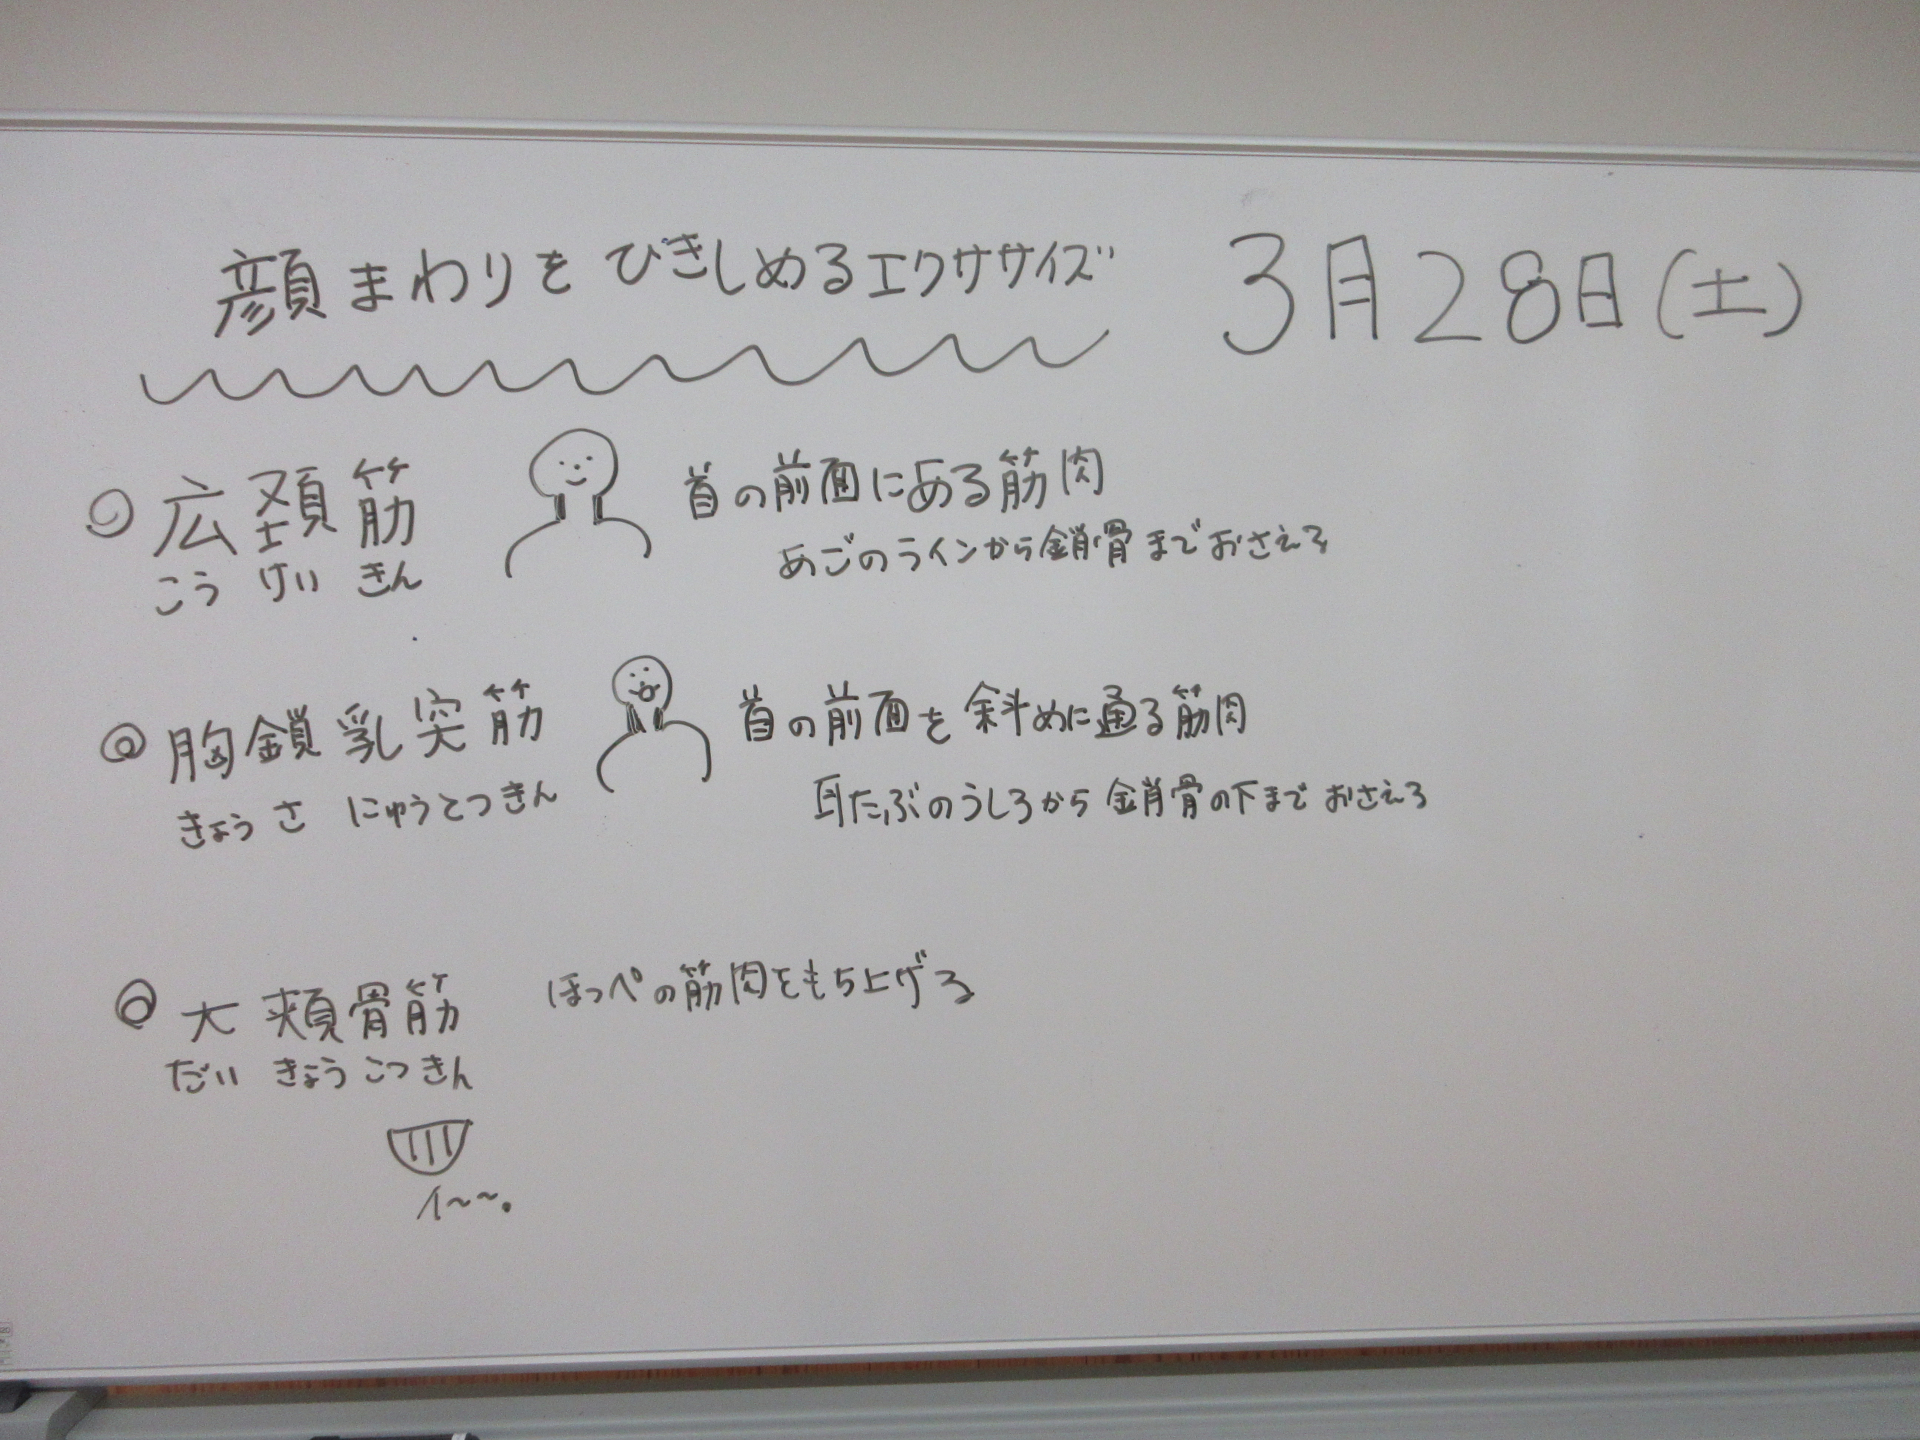 顔まわりをひきしめるエクササイズ 3月28日(土)
◎広頚筋 首の前面にある筋肉
こうけいきん あごのラインから鎖骨までおさえる
◎胸鎖乳突筋 首の前面を斜めに通る筋肉
きょうさにゅうとつきん 耳たぶのうしろから鎖骨の下までおさえる
◎大頬骨筋 ほっぺの筋肉をもち上げる
だいきょうこつきん
イ〜〜。